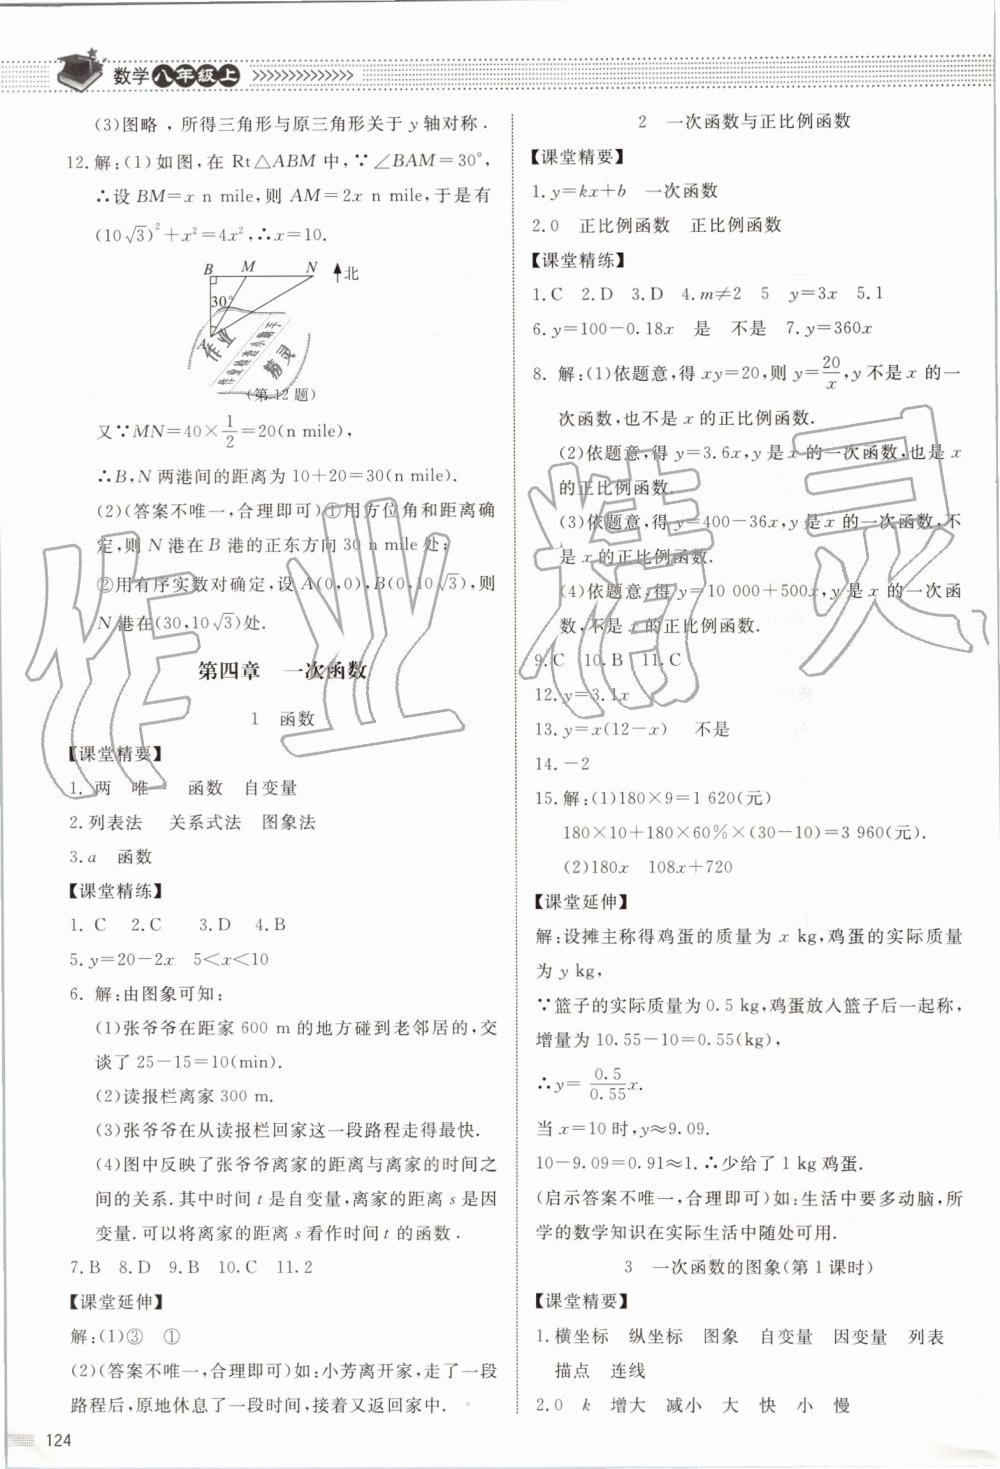 数学八年级上
(3)图略，所得三角形与原三角形关于 y 轴对称.
12.解:(1)如图,在 Rt△ABM 中,∵∠BAM=30°,
∴设 BM=x n mile,则 AM=2x n mile,于是有
(10√3)²+x²=4x²,∴x=10.
B M N 北
30°
A
(第 12 题)
又∵MN=40×1/2=20(n mile),
∴B,N 两港间的距离为 10+20=30(n mile).
(2)(答案不唯一,合理即可)①用方位角和距离确
定,则 N 港在 B 港的正东方向 30 n mile 处;
②用有序实数对确定,设 A(0,0),B(0,10√3),则
N 港在(30,10√3)处.
第四章 一次函数
1 函数
【课堂精要】
1. 两 唯一 函数 自变量
2.列表法 关系式法 图象法
3.a 函数
【课堂精练】
1. C 2.C 3.D 4.B
5.y=20-2x 5<x<10
6. 解:由图象可知:
(1)张爷爷在距家 600 m 的地方碰到老邻居的,交
谈了 25-15=10(min).
(2)读报栏离家 300 m.
(3)张爷爷在从读报栏回家这一段路程走得最快.
(4)图中反映了张爷爷离家的距离与离家的时间之
间的关系.其中时间 t 是自变量,离家的距离 s 是因
变量.可以将离家的距离 s 看作时间 t 的函数.
7.B 8.D 9.B 10.C 11.2
【课堂延伸】
解:(1)③ ①
(2)(答案不唯一,合理即可)如:小芳离开家,走了一段
路程后,原地休息了一段时间,接着又返回家中.
124
2 一次函数与正比例函数
【课堂精要】
1.y=kx+b 一次函数
2.0 正比例函数 正比例函数
【课堂精练】
1.C 2.D 3.D 4.m≠2 5 y=3x 5.1
6.y=100-0.18x 是 不是 7.y=360x
8. 解:(1)依题意,得 xy=20,则 y=20/x,y 不是 x 的一
次函数,也不是 x 的正比例函数.
(2)依题意,得 y=3.6x,y 是 x 的一次函数,也是 x
的正比例函数.
(3)依题意,得 y=400-36x,y 是 x 的一次函数,不
是 x 的正比例函数.
(4)依题意,得 y=10 000+500x,y 是 x 的一次函
数,不是 x 的正比例函数.
9.C 10.B 11.C
12.y=3.1x
13.y=x(12-x) 不是
14.-2
15.解:(1)180×9=1 620(元)
180×10+180×60%×(30-10)=3 960(元).
(2)180x 108x+720
【课堂延伸】
解:设摊主称得鸡蛋的质量为 x kg,鸡蛋的实际质量
为 y kg,
∵篮子的实际质量为 0.5 kg,鸡蛋放入篮子后一起称,
增量为 10.55-10=0.55(kg),
∴y=0.5/0.55x.
当 x=10 时,y≈9.09.
10-9.09=0.91≈1.∴少给了 1 kg 鸡蛋.
(启示答案不唯一,合理即可)如:生活中要多动脑,所
学的数学知识在实际生活中随处可用.
3 一次函数的图象(第 1 课时)
【课堂精要】
1.横坐标 纵坐标 图象 自变量 因变量 列表
描点 连线
2.0 k 增大 减小 大 快 小 慢
作业精灵